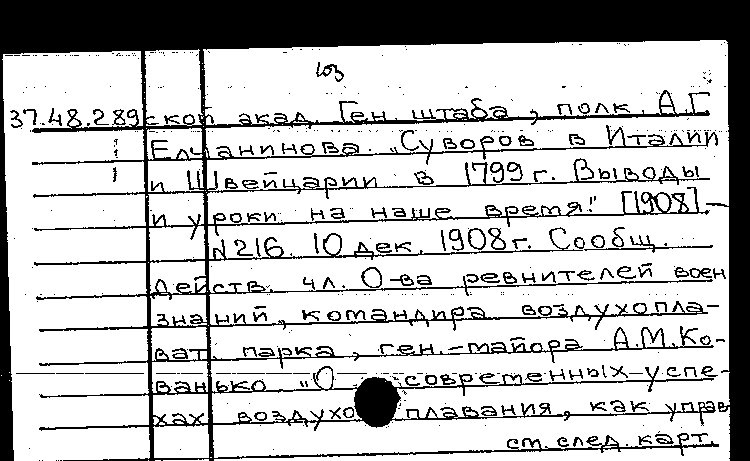 103
37.48.289 ской акад. Ген. штаба, полк. А.Г.
Елчанинова. „Суворов в Италии
и Швейцарии в 1799 г. Выводы
и уроки на наше время!" [1908].—
N 216. 10 дек. 1908 г. Сообщ.
действ. чл. О-ва ревнителей воен
знаний, командира воздухопла-
ват. парка, ген.-майора А.М.Ко-
ванько „О современных успе-
хах воздухоплавания, как управ
см. след. карт.